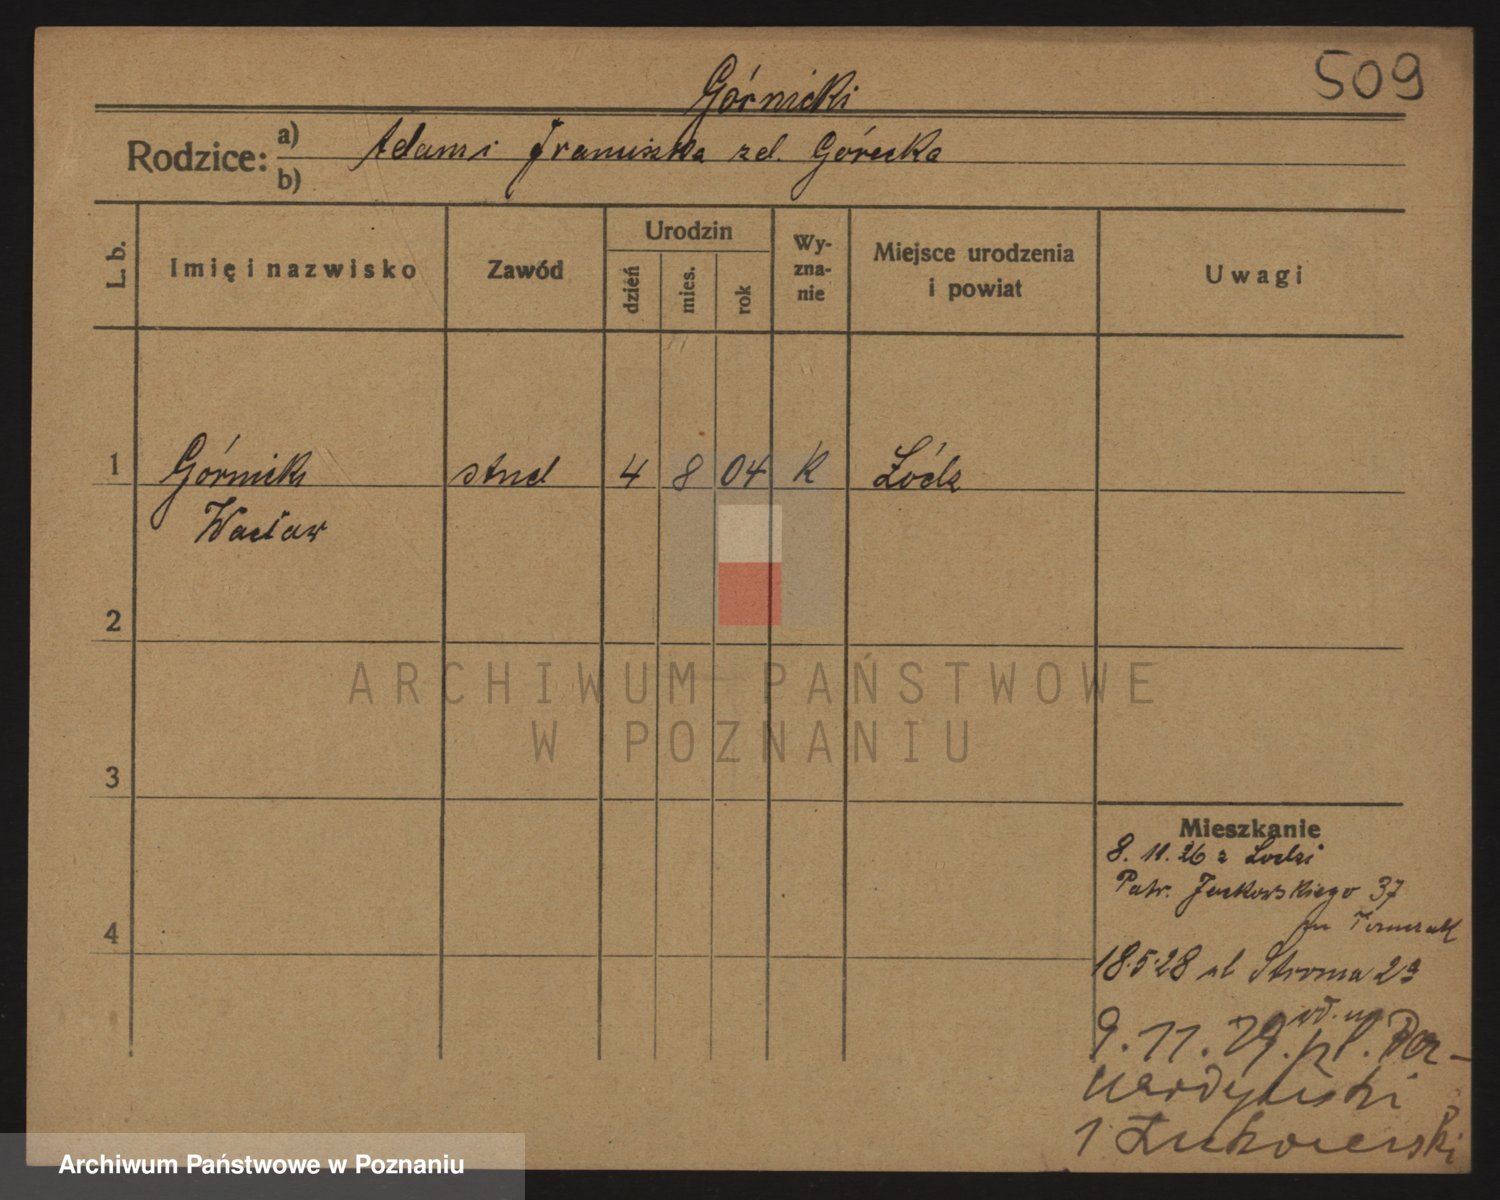 509
Górnicki
Rodzice: a) Adam i Franciszka zd. Górecka
b)
L. b. Imię i nazwisko Zawód Urodzin dzień mies. rok Wy-zna-nie Miejsce urodzenia i powiat Uwagi
1 Górnicki stud 4 8 04 K Łódz
Wacław
2
ARCHIWUM PAŃSTWOWE
W POZNANIU
3
Mieszkanie
8. 11. 26 z Lodzi
Patr. Jackowskiego 37
4
18.5.28 ul Stroma 23
9. 11. 29. pl. Ber-
nardyński
1 Łukowerski
Archiwum Państwowe w Poznaniu